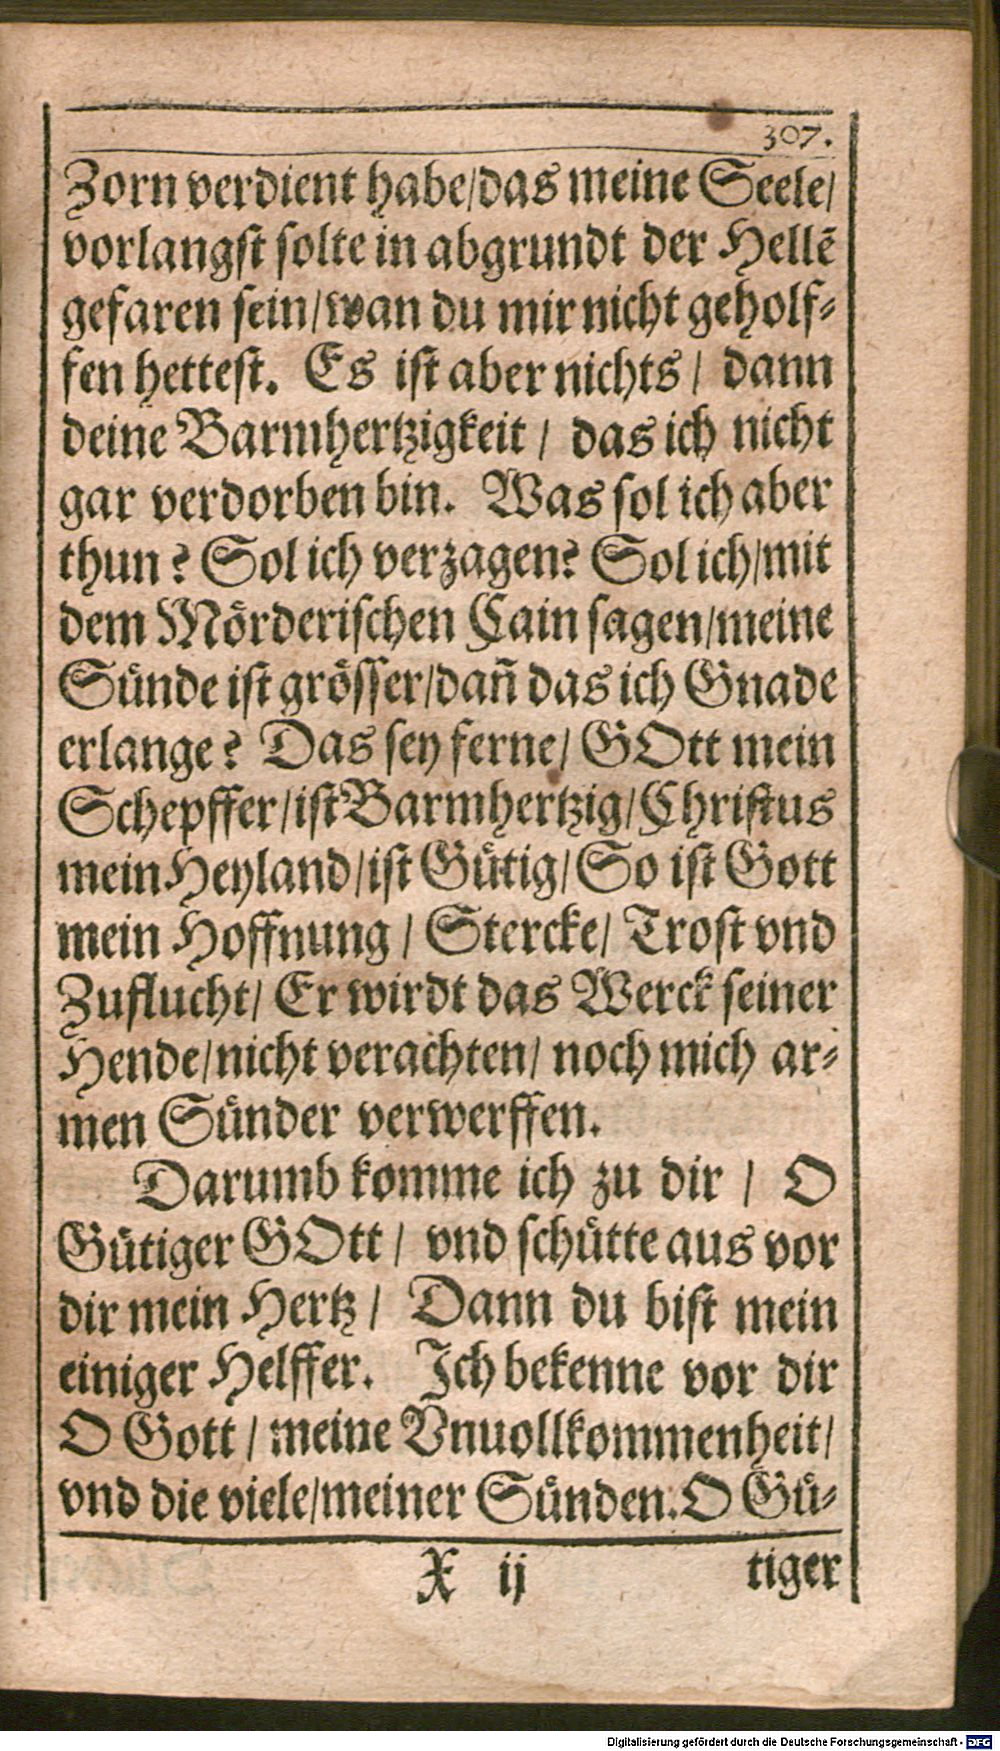 307.
Zorn verdient habe/das meine Seele/
vorlangst solte in abgrundt der Hellẽ
gefaren sein/wan du mir nicht geholf-
fen hettest. Es ist aber nichts/ dann
deine Barmhertzigkeit/ das ich nicht
gar verdorben bin. Was sol ich aber
thun? Sol ich verzagen? Sol ich/mit
dem Mörderischen Cain sagen/meine
Sünde ist grösser/dañ das ich Gnade
erlange? Das sey ferne/ GOtt mein
Schepffer/ist Barmhertzig/Christus
mein Heyland/ist Gütig/So ist Gott
mein Hoffnung/ Stercke/ Trost vnd
Zuflucht/ Er wirdt das Werck seiner
Hende/nicht verachten/ noch mich ar-
men Sünder verwerffen.
Darumb komme ich zu dir/ O
Gütiger GOtt/ vnd schütte aus vor
dir mein Hertz/ Dann du bist mein
einiger Helffer. Ich bekenne vor dir
O Gott/ meine Vnuollkommenheit/
vnd die viele/meiner Sünden. O Gü-
X ij tiger
Digitalisierung gefördert durch die Deutsche Forschungsgemeinschaft - DFG